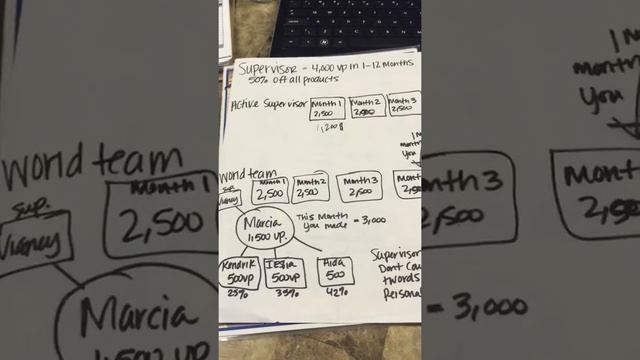 Supervisor = 4,000 vp in 1-12 months
50% off all products
Active Supervisor
Month 1
2,500
Month 2
2,500
Month 3
2,500
world team
Sup.
Month 1
2,500
Month 2
2,500
Month 3
2,500
Month
Marcia
1,500 vp.
This Month
You made = 3,000
Kendrik
500vp
25%
500vp
35%
Aida
500
42%
Supervisor
Dont Cou
twords
Personal